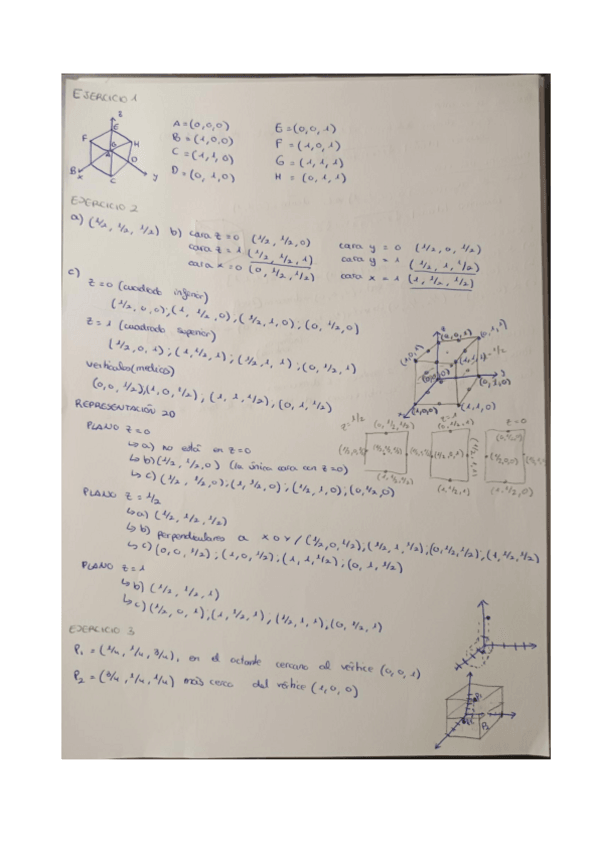 EJERCICIO 1
A = (0,0,0)
B = (1,0,0)
C = (1,1,0)
D = (0,1,0)
E = (0,0,1)
F = (1,0,1)
G = (1,1,1)
H = (0,1,1)
z
E
F
G
H
A
B
D
x
C
y
EJERCICIO 2
a) (1/2, 1/2, 1/2) b) cara z=0 (1/2, 1/2, 0)
cara z=1 (1/2, 1/2, 1)
cara x=0 (0, 1/2, 1/2)
cara y=0 (1/2, 0, 1/2)
cara y=1 (1/2, 1, 1/2)
cara x=1 (1, 1/2, 1/2)
c)
z=0 (cuadrado inferior)
(1/2, 0, 0), (1, 1/2, 0), (1/2, 1, 0); (0, 1/2, 0)
z=1 (cuadrado superior)
(1/2, 0, 1); (1, 1/2, 1); (1/2, 1, 1); (0, 1/2, 1)
verticales (medios)
(0,0, 1/2), (1, 0, 1/2), (1, 1, 1/2), (0, 1, 1/2)
(0,0,1)
(0,1,1)
(1,0,1)
(1,1,1)
(0,0,0)
(0,1,0)
(1,0,0)
(1,1,0)
REPRESENTACIÓN 2D
PLANO z=0
↳ a) no está en z=0
↳ b) (1/2, 1/2, 0) (la única cara con z=0)
z=1/2
(0, 1/2, 1/2)
(1, 1/2, 1/2)
z=1
(0, 1/2, 1)
(1/2, 1/2, 1)
(1, 1/2, 1)
z=0
(1, 1/2, 0)
PLANO z=1/2
↳ a) (1/2, 1/2, 1/2)
↳ b) perpendiculares a x o y / (1/2, 0, 1/2), (1/2, 1, 1/2); (0, 1/2, 1/2), (1, 1/2, 1/2)
↳ c) (0, 0, 1/2); (1, 0, 1/2), (1, 1, 1/2); (0, 1, 1/2)
PLANO z=1
↳ b) (1/2, 1/2, 1)
↳ c) (1/2, 0, 1), (1, 1/2, 1), (1/2, 1, 1), (0, 1/2, 1)
EJERCICIO 3
P₁ = (1/4, 1/4, 3/4), en el octante cercano al vértice (0,0,1)
P₂ = (3/4, 1/4, 1/4) más cerca del vértice (1,0,0)
P₁
P₂